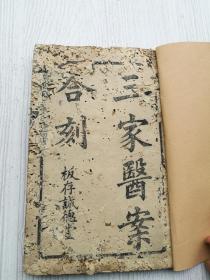 三家醫案
合刻
板存誠德堂